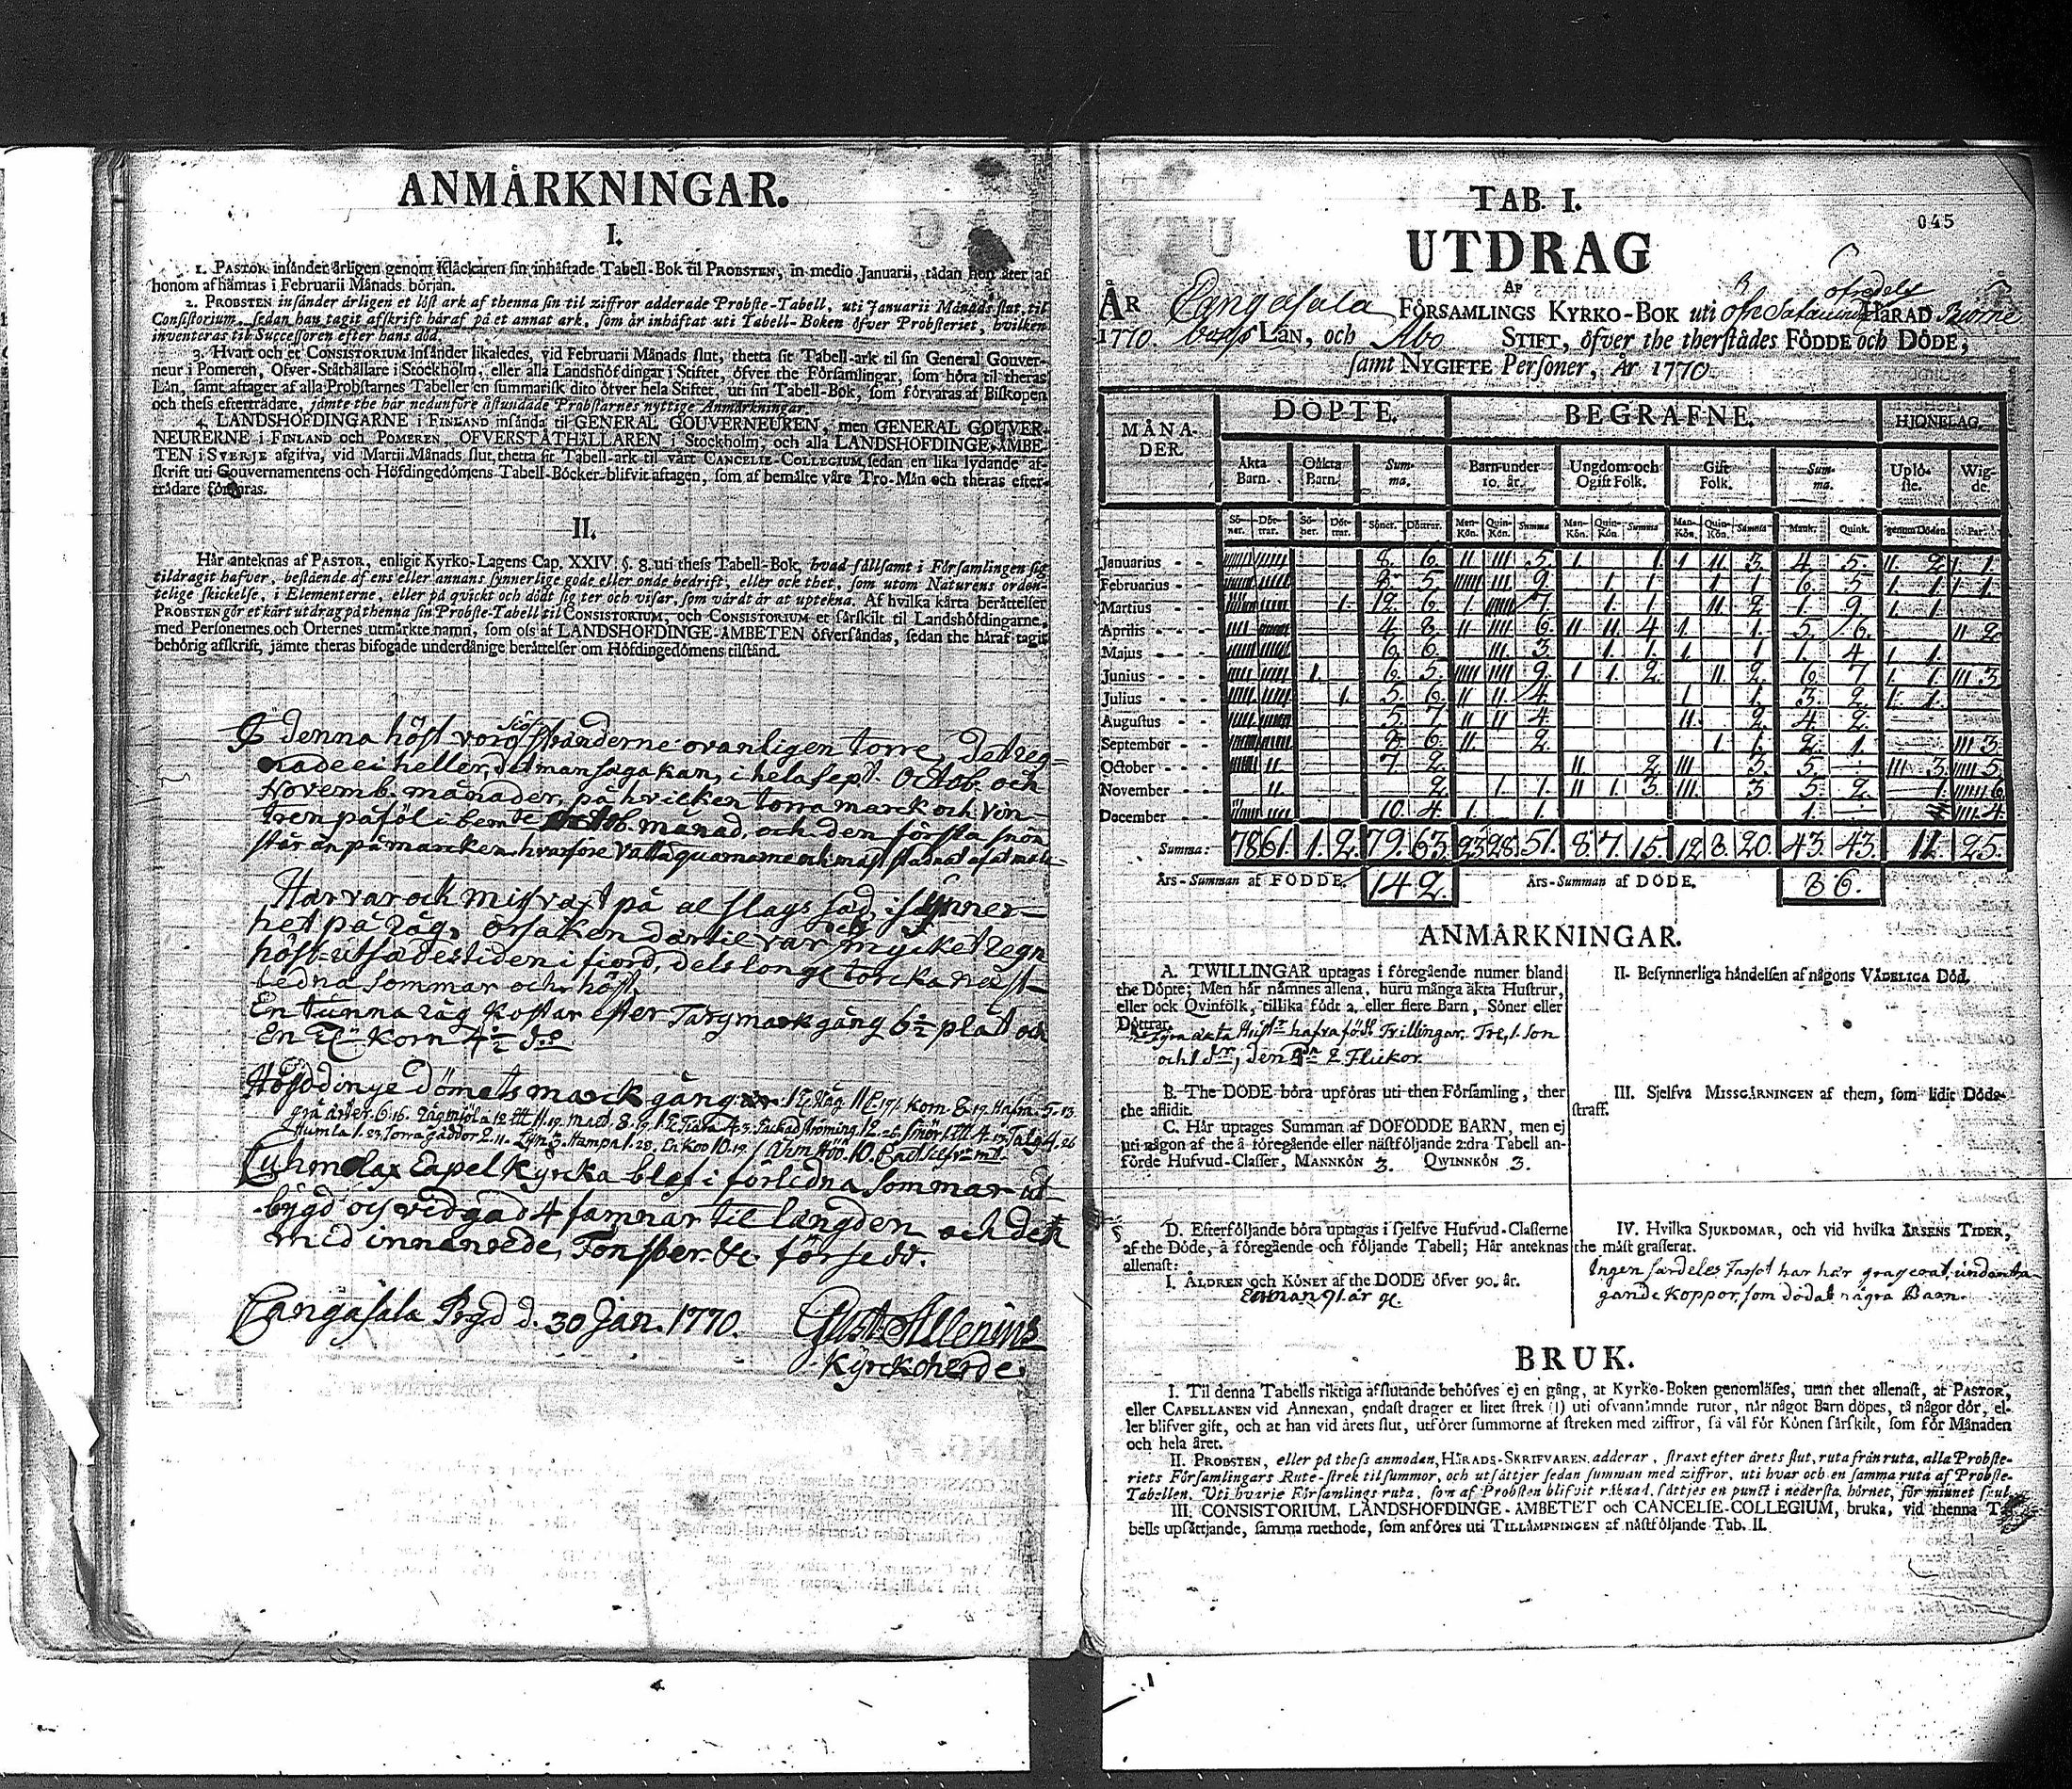 ANMÄRKNINGAR.
I.
1. PASTOR insänder årligen genom Kläckaren sin inhäftade Tabell-Bok til PROBSTEN, in medio Januarii, sådan hon åter af
honom afhämtas i Februarii Månads början.
2. PROBSTEN insänder årligen et löst ark af thenna sin til ziffror adderade Probste-Tabell, uti Januarii Månads slut, til
Consistorium, sedan han tagit afskrift häraf på et annat ark, som är inhäftat uti Tabell-Boken öfver Probsteriet, hvilken
inventeras til Successoren efter hans död.
3. Hvart och et CONSISTORIUM insänder likaledes, vid Februarii Månads slut, thetta sit Tabell-ark til sin General Gouver-
neur i Pomeren, Öfver-Ståthållare i Stockholm, eller alla Landshöfdingar i Stiftet, öfver the Församlingar, som höra til theras
Län, samt aftager af alla Probstarnes Tabeller en summarisk dito öfver hela Stiftet, uti sin Tabell-Bok, som förvaras af Biskopen
och thess efterträdare, jämte the här nedunföre åstundade Probstarnes nyttige Anmärkningar.
4. LANDSHÖFDINGARNE i FINLAND insända til GENERAL GOUVERNEUREN, men GENERAL GOUVER-
NEURERNE i FINLAND och POMEREN, ÖFVERSTÅTHÅLLAREN i Stockholm, och alla LANDSHÖFDINGE-ÄMBE-
TEN i SVERJE afgifva, vid Martii Månads slut, thetta sit Tabell-ark til vårt CANCELIE-COLLEGIUM, sedan en lika lydande af-
skrift uti Gouvernamentens och Höfdingedömens Tabell-Böcker blifvit aftagen, som af bemälte våre Tro-Män och theras efter-
trädare förvaras.
II.
Här anteknas af PASTOR, enligit Kyrko-Lagens Cap. XXIV. §. 8. uti thess Tabell-Bok, hvad sällsamt i Församlingen sig
tildragit hafver, bestående af ens eller annans synnerlige gode eller onde bedrift, eller ock thet, som utom Naturens orden-
telige skickelse, i Elementerne, eller på quickt och dödt sig ter och visar, som värdt är at uptekna. Af hvilka korta berättelser
PROBSTEN gör et kårt utdrag på thenna sin Probste-Tabell til CONSISTORIUM, och CONSISTORIUM et särskilt til Landshöfdingarne,
med Personernes och Orternes utmärkte namn, som oss af LANDSHÖFDINGE-ÄMBETEN öfversändas, sedan the häraf tagit
behörig afskrift, jämte theras bifogade underdånige berättelser om Höfdingedömens tilstånd.
I denna höst voro sjöstränderne ovanligen torre, det reg-
nade ei heller, det man säga kan, i hela Sept. Octob. och
Novemb. månader, på hvilken torra marck och vin-
tren påföl i bemte månad, och den första snön
står än på marcken, hvarföre
Här var ock missväxt på al slags säd, i synner-
het på råg. orsaken därtil var mycket regn
höst-utsädestiden i fiord, dels longe torcka näst-
ledna sommar och höst.
En tunna råg kostar efter Targmarkgång 6½ plåt och
En Tª Korn 4½ do
Höfddinge Dömets marck gång är 1 Tª Råg 11 korn. 8. 19. Hafra. 5. 13.
Cuhmalax Capel Kÿrcka blef i förledna Sommar ut-
bygd och vidgad 4 famnar til längden och det
med innanrede, Fönster &c försedd.
Cangasala Prgd d. 30 Jan. 1770. Gust: Allenius
Kÿrckoherde.
045
TAB. I.
UTDRAG
AF
ÅR Cangasala FÖRSAMLINGS KYRKO-BOK uti öfre Satacunda öfredels HÄRAD Biörne
1770. borgs LÄN, och Åbo STIFT, öfver the therstädes FÖDDE och DÖDE,
samt NYGIFTE Personer, År 1770.
MÅNA-DER. DÖPTE. BEGRAFNE. HJONELAG.
Äkta Barn. Oäkta Barn. Summa. Barn under 10. år. Ungdom och Ogift Folk. Gift Folk. Summa. Uplöste. Wigde.
Söner. Döttrar. Söner. Döttrar. Söner. Döttrar. Man-Kön. Quin-Kön. Summa Man-Kön. Quin-Kön. Summa Man-Kön. Quin-Kön. Summa Mank. Quink. genom Döden. Par.
Januarius - - 8. 6. 5. 1. 3. 4. 5. 2. 1.
Februarius - - 8. 5. 9. 1. 1. 6. 5. 1. 1.
Martius - - 12. 6. 7. 1. 2. 1. 9. 1.
Aprilis - - 4. 8. 6. 4. 1. 5. 6. 2.
Majus - - 6. 6. 3. 1. 1. 1. 4. 1.
Junius - - 6. 5. 9. 2. 2. 6. 7. 1. 3.
Julius - - 5. 6. 4. 1. 3. 2. 1.
Augustus - - 5. 7. 4. 2. 4. 2.
September - - 8. 6. 2. 1. 2. 1. 3.
October - - 7. 2. 2. 3. 5. 3. 5.
November - - 2. 1. 3. 3 5. 2. 1. 6.
December - - 10. 4. 1. 1. 4.
Summa: 78 61. 1. 2. 79. 63. 23 28. 51. 8. 7. 15. 12 8. 20. 43. 43. 11. 25.
Års-Summan af FÖDDE. 142. Års-Summan af DÖDE. 86.
ANMÄRKNINGAR.
A. TWILLINGAR uptagas i föregående numer bland
the Döpte; Men här nämnes allena, huru många äkta Hustrur,
eller ock Qvinfolk, tillika födt 2. eller flere Barn, Söner eller
Döttrar.
Fyra äkta Hustr hafva födt Tvillingar. Tre, 1. Son
och 1 dr, den 4de 2 Flickor.
B. The DÖDE böra upföras uti then Församling, ther
the aflidit.
C. Här uptages Summan af DÖFÖDDE BARN, men ej
uti någon af the å föregående eller nästföljande 2:dra Tabell an-
förde Hufvud-Classer, MANNKÖN 3. QWINNKÖN 3.
D. Efterföljande böra uptagas i sjelfve Hufvud-Classerne
af the Döde, å föregående och följande Tabell; Här anteknas
allenast:
I. ÅLDREN och KÖNET af the DÖDE öfver 90. år.
En man 91. år gl.
II. Besynnerliga händelsen af någons VÅDELIGA DÖD.
III. Sjelfva MISSGÄRNINGEN af them, som lidit Döds-
straff.
IV. Hvilka SJUKDOMAR, och vid hvilka ÅRSENS TIDER,
the mäst grasserat.
Ingen särdeles Farsot har här grasserat, undanta-
gande koppor, som dödat några Barn.
BRUK.
I. Til denna Tabells riktiga afslutande behöfves ej en gång, at Kyrko-Boken genomläses, utan thet allenast, at PASTOR,
eller CAPELLANEN vid Annexan, endast drager et litet strek (|) uti ofvannämnde rutor, när något Barn döpes, tå någor dör, el-
ler blifver gift, och at han vid årets slut, utförer summorne af streken med ziffror, så väl för Könen särskilt, som för Månaden
och hela året.
II. PROBSTEN, eller på thess anmodan, HÄRADS-SKRIFVAREN, adderar, straxt efter årets slut, ruta från ruta, alla Probste-
riets Församlingars Rute-strek til summor, och utsättjer sedan summan med ziffror, uti hvar och en samma ruta af Probste-
Tabellen. Uti hvarje Församlings ruta, som af Probsten blifvit räknad, sättjes en punct i nedersta hörnet, för minnet skul.
III. CONSISTORIUM, LANDSHÖFDINGE-ÄMBETET och CANCELIE-COLLEGIUM, bruka, vid thenna
bells upsättjande, samma methode, som anföres uti TILLÄMPNINGEN af nästföljande Tab. II.